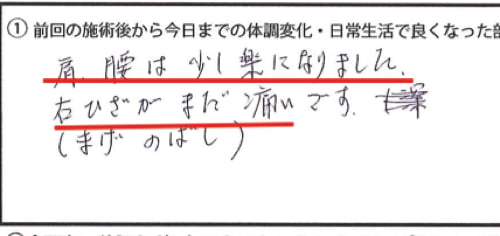 ① 前回の施術後から今日までの体調変化・日常生活で良くなった
肩、腰は少し楽になりました。
右ひざがまだ痛いです。
(まげのばし)